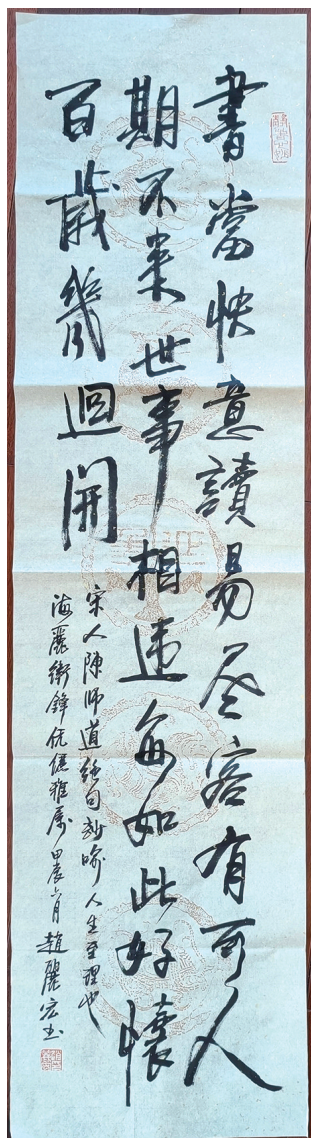 書當快意讀易盡客有可人
期不來世事相違每如此好懷
百歲幾迴開
宋人陳師道絕句 人生至理也
海麗衛鋒伉儷雅屬 甲辰六月 趙麗宏書